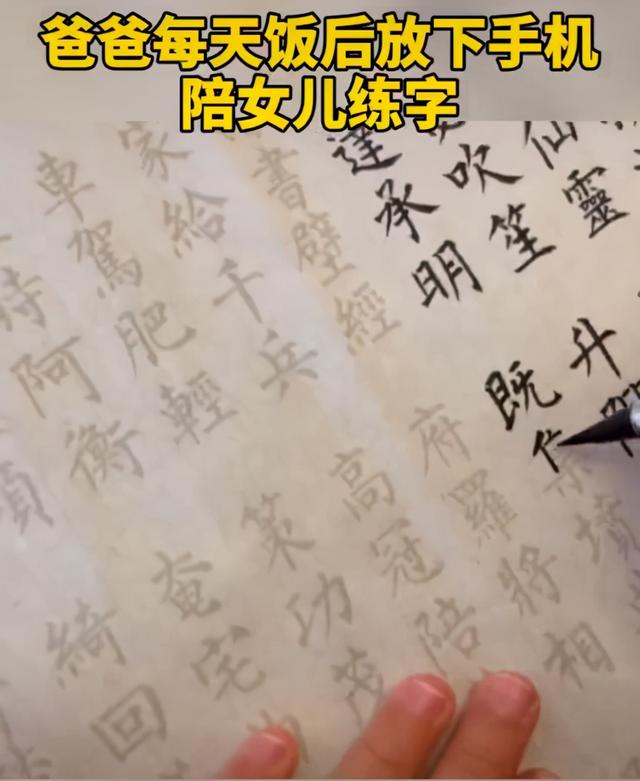 爸爸每天饭后放下手机
陪女儿练字
仙靈
吹笙升
達承明既集墳
書壁經府羅將相
家給千兵高冠陪
車駕肥輕策功茂
時阿衡奄宅
綺回